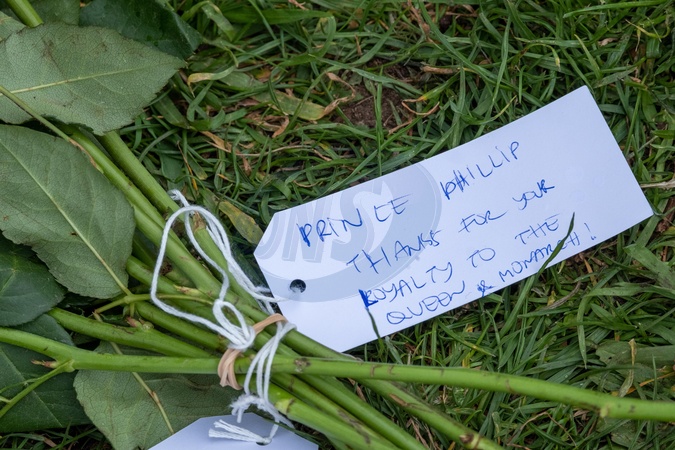 PRINCE PHILLIP
THANKS FOR YOUR
LOYALTY TO THE
QUEEN & MONARCH!